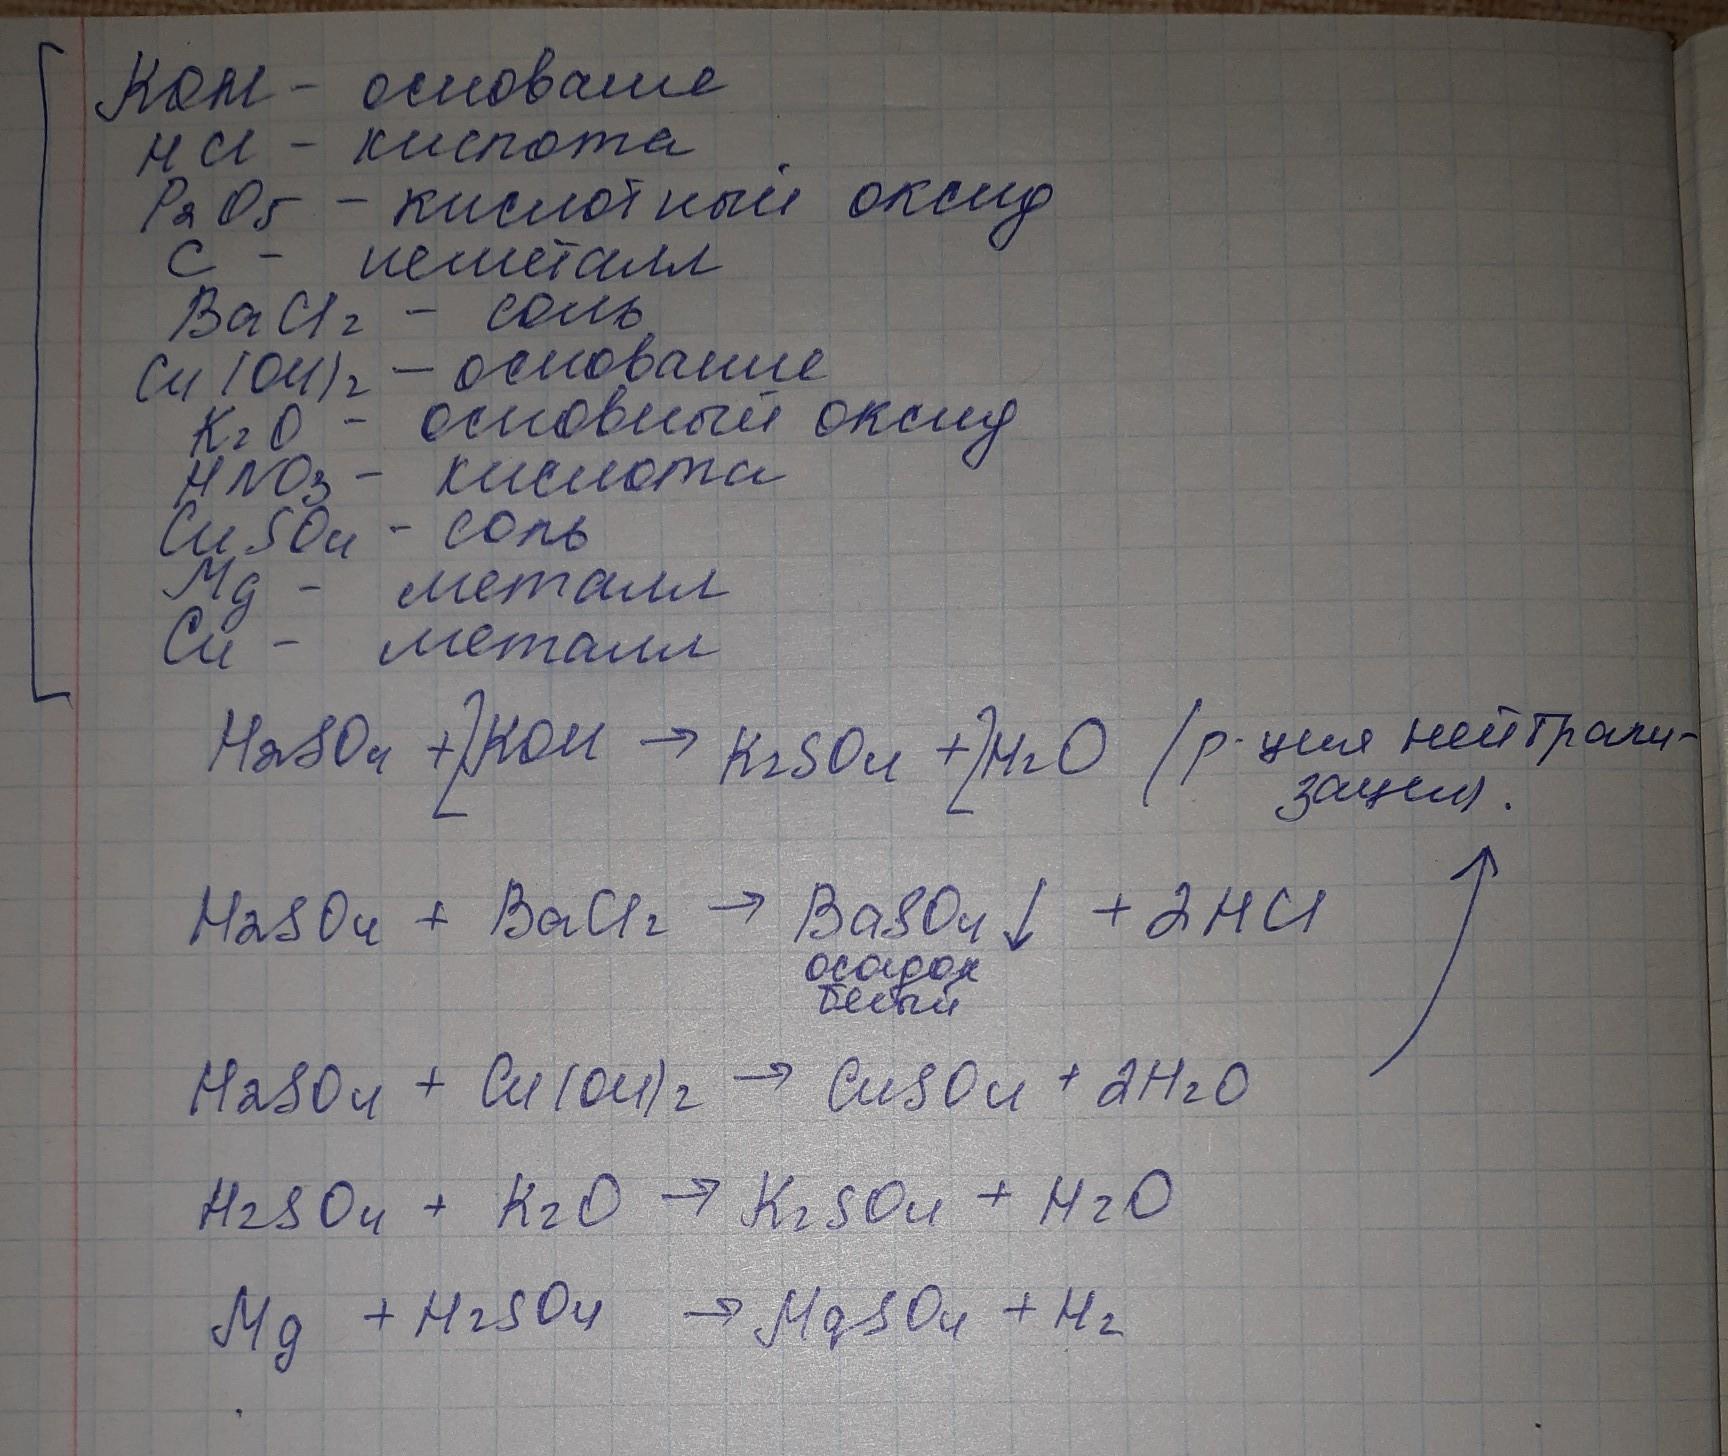 KOH - основание
HCl - кислота
P2O5 - кислотный оксид
C - неметалл
BaCl2 - соль
Cu(OH)2 - основание
K2O - основный оксид
HNO3 - кислота
CuSO4 - соль
Mg - металл
Cu - металл
H2SO4 + 2KOH → K2SO4 + 2H2O (р-ция нейтрали-
зации).
H2SO4 + BaCl2 → BaSO4↓ + 2HCl
осадок
белый
H2SO4 + Cu(OH)2 → CuSO4 + 2H2O
H2SO4 + K2O → K2SO4 + H2O
Mg + H2SO4 → MgSO4 + H2